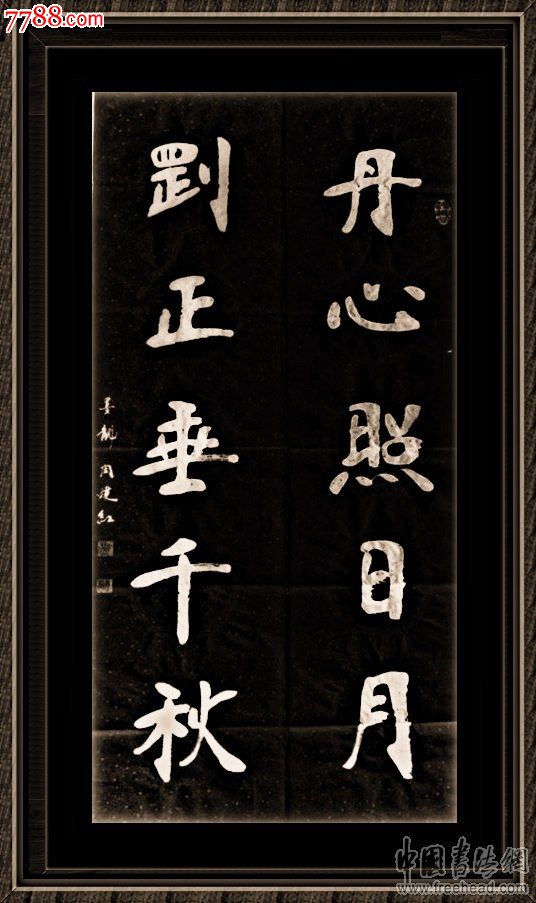 7788.com
丹心照日月
剛正垂千秋
墨龍 周建紅
中國書法網
www.freehead.com